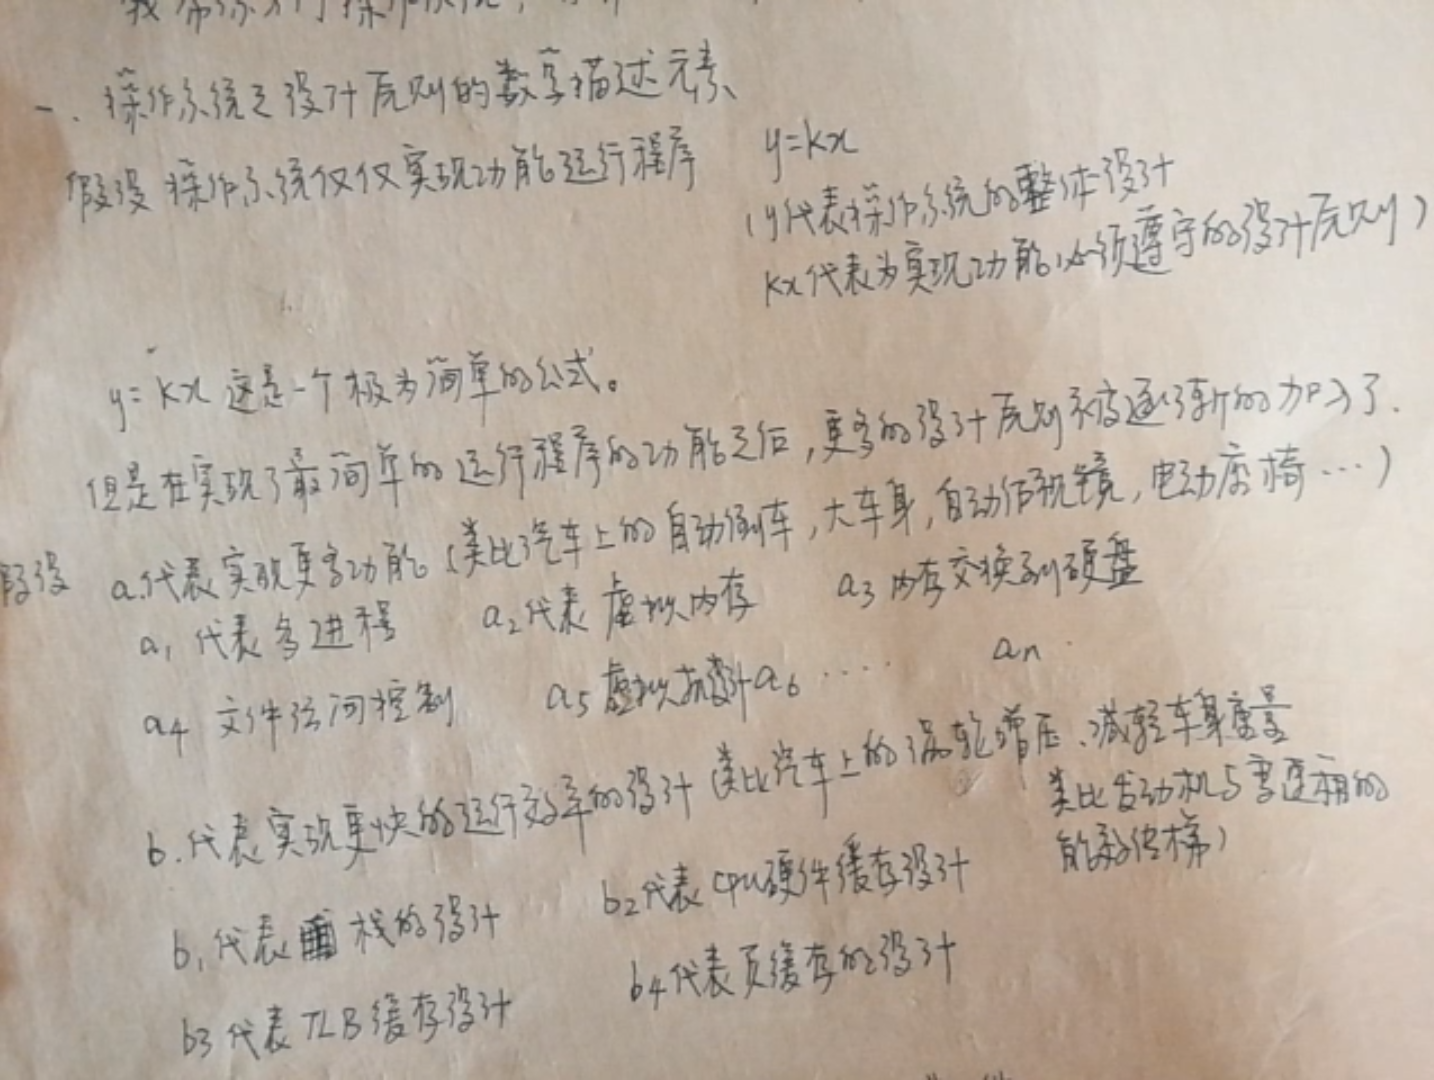 一、操作系统之设计原则的数学描述元素、
假设 操作系统仅仅实现功能运行程序 y=kx
(y代表操作系统的整体设计
kx代表为实现功能必须遵守的设计原则)
y=kx 这是一个极为简单的公式。
但是在实现了最简单的运行程序的功能之后,更多的设计原则被逐渐的加入了.
假设 a.代表实现更多功能(类比汽车上的自动倒车,大车身,自动后视镜,电动座椅…)
a1 代表多进程 a2代表虚拟内存 a3内存交换到硬盘
a4 文件访问控制 a5虚拟 a6 ···· an
b.代表实现更快的运行效率的设计(类比汽车上的涡轮增压、减轻车身重量
类比发动机与变速箱的
能效)
b1代表栈的设计 b2代表CPU硬件缓存设计
b3代表TLB缓存设计 b4代表页缓存的设计